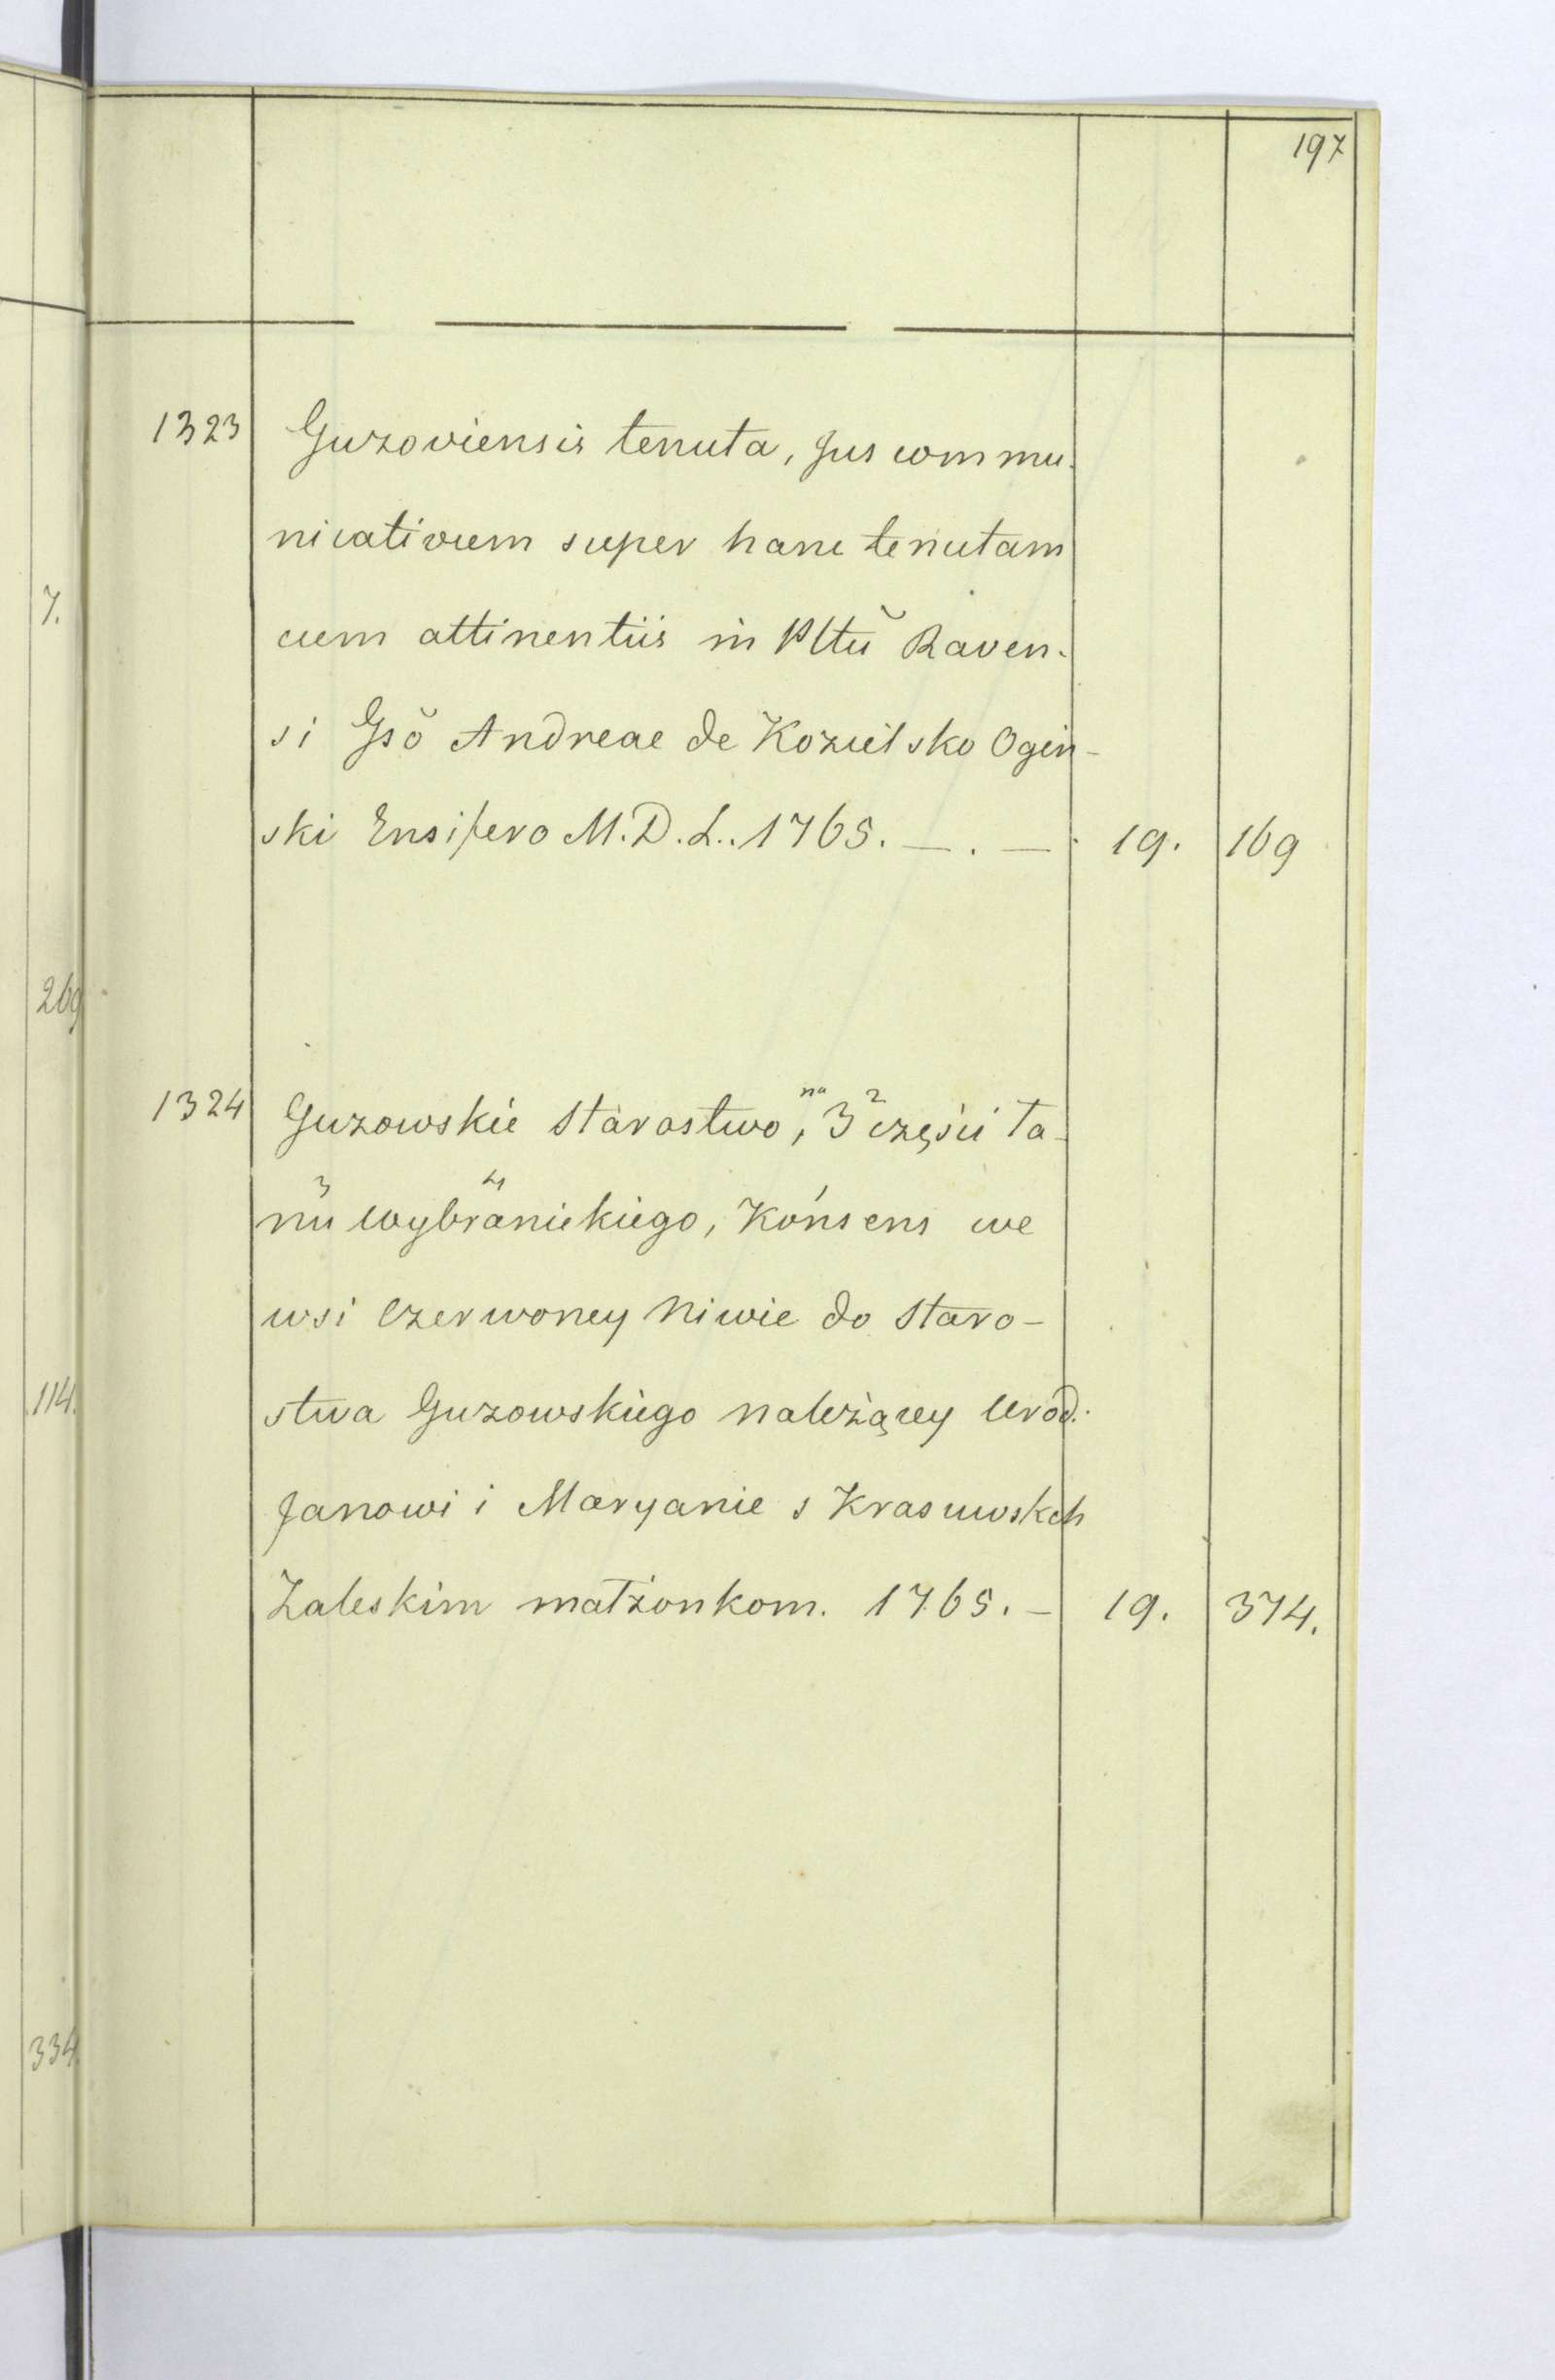 197
1323 Guzoviensis tenuta, Jus commu-
nicativum super hanc tenutam
cum attinentiis in Pltũ Raven-
si Gsõ Andreae de Kozielsko Ogin-
ski Ensifero M.D.L. 1765. — . — 19. 169
1324 Guzowskie Starostwo, na 3 2 części Ta-
3 4
nu Wybranickiego, Konsens we
wsi Czerwoney Niwie do Staro-
stwa Guzowskiego należącey Urod.
Janowi i Maryanie s
Zaleskim małżonkom. 1765. — 19. 374.
7.
269
114.
334.